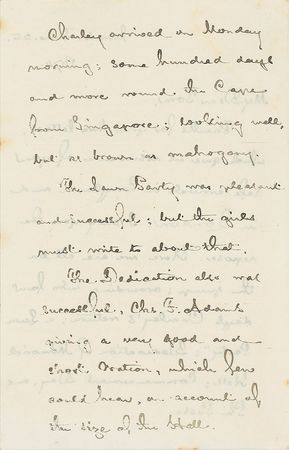 Charley arrived on Monday
morning; some hundred days
and more round the Cape
from Singapore; looking well,
but as brown as mahogany.
The Lawn Party was pleasant
and successful; but the girls
must write to about that.
The Dedication also was
successful, Chs. F. Adams
giving a very good and
oration, which few
could hear, on account of
the size of the Hall.